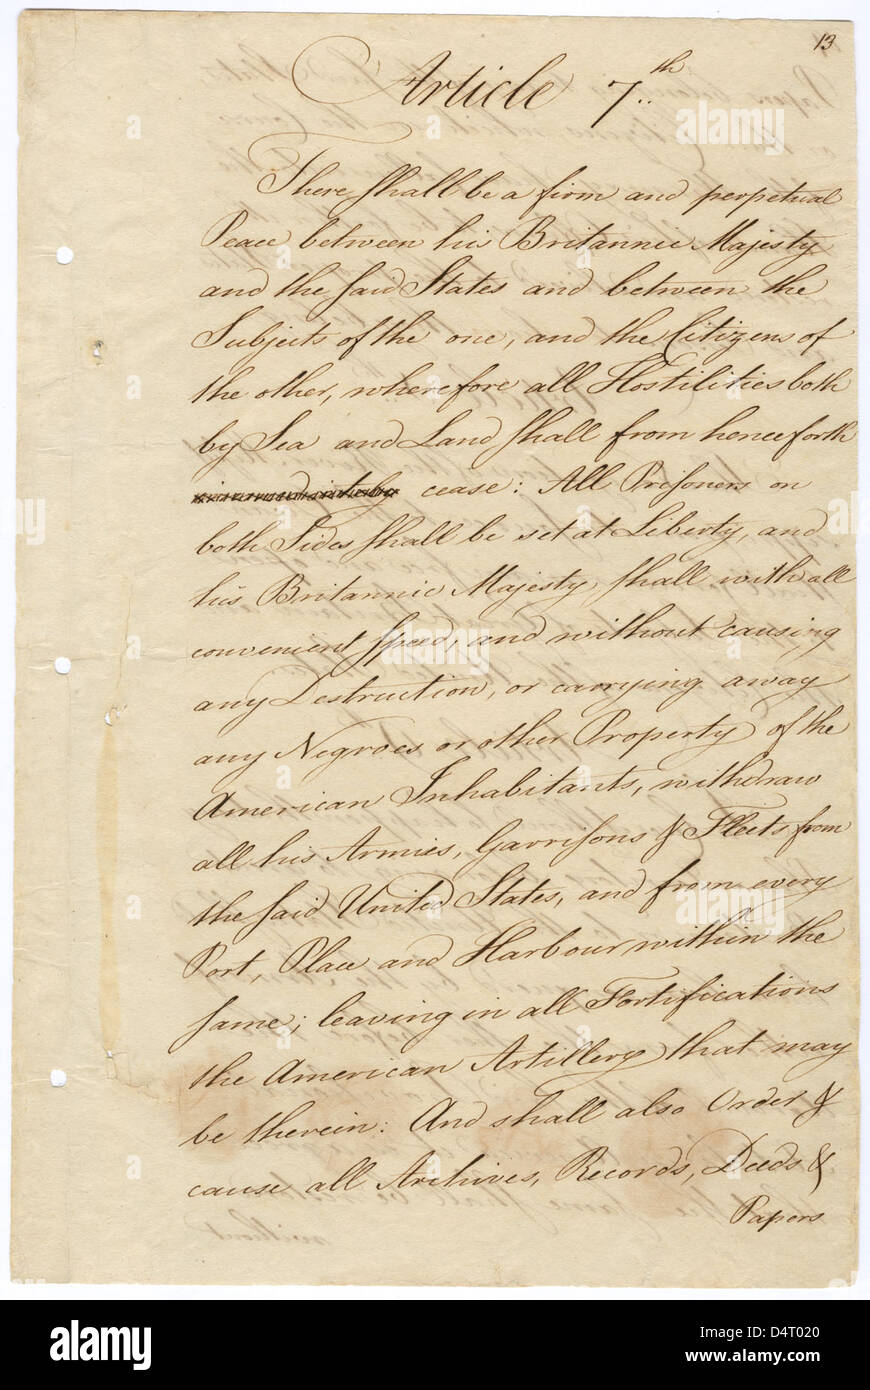 13
Article 7..th
There shall be a firm and perpetual
Peace between his Britannic Majesty
and the said States and between the
Subjects of the one, and the Citizens of
the other, wherefore all Hostilities both
by Sea and Land shall from henceforth
cease: All Prisoners on
both Sides shall be set at Liberty, and
his Britannic Majesty, shall with all
convenient speed, and without causing
any Destruction, or carrying away
any Negroes or other Property of the
American Inhabitants, withdraw
all his Armies, Garrisons & Fleets from
the said United States, and from every
Port, Place and Harbour within the
same; leaving in all Fortifications
the American Artillery that may
be therein: And shall also Order &
cause all Archives, Records, Deeds &
Papers
without
a alamy
alamy
Image ID: D4T020
www.alamy.com